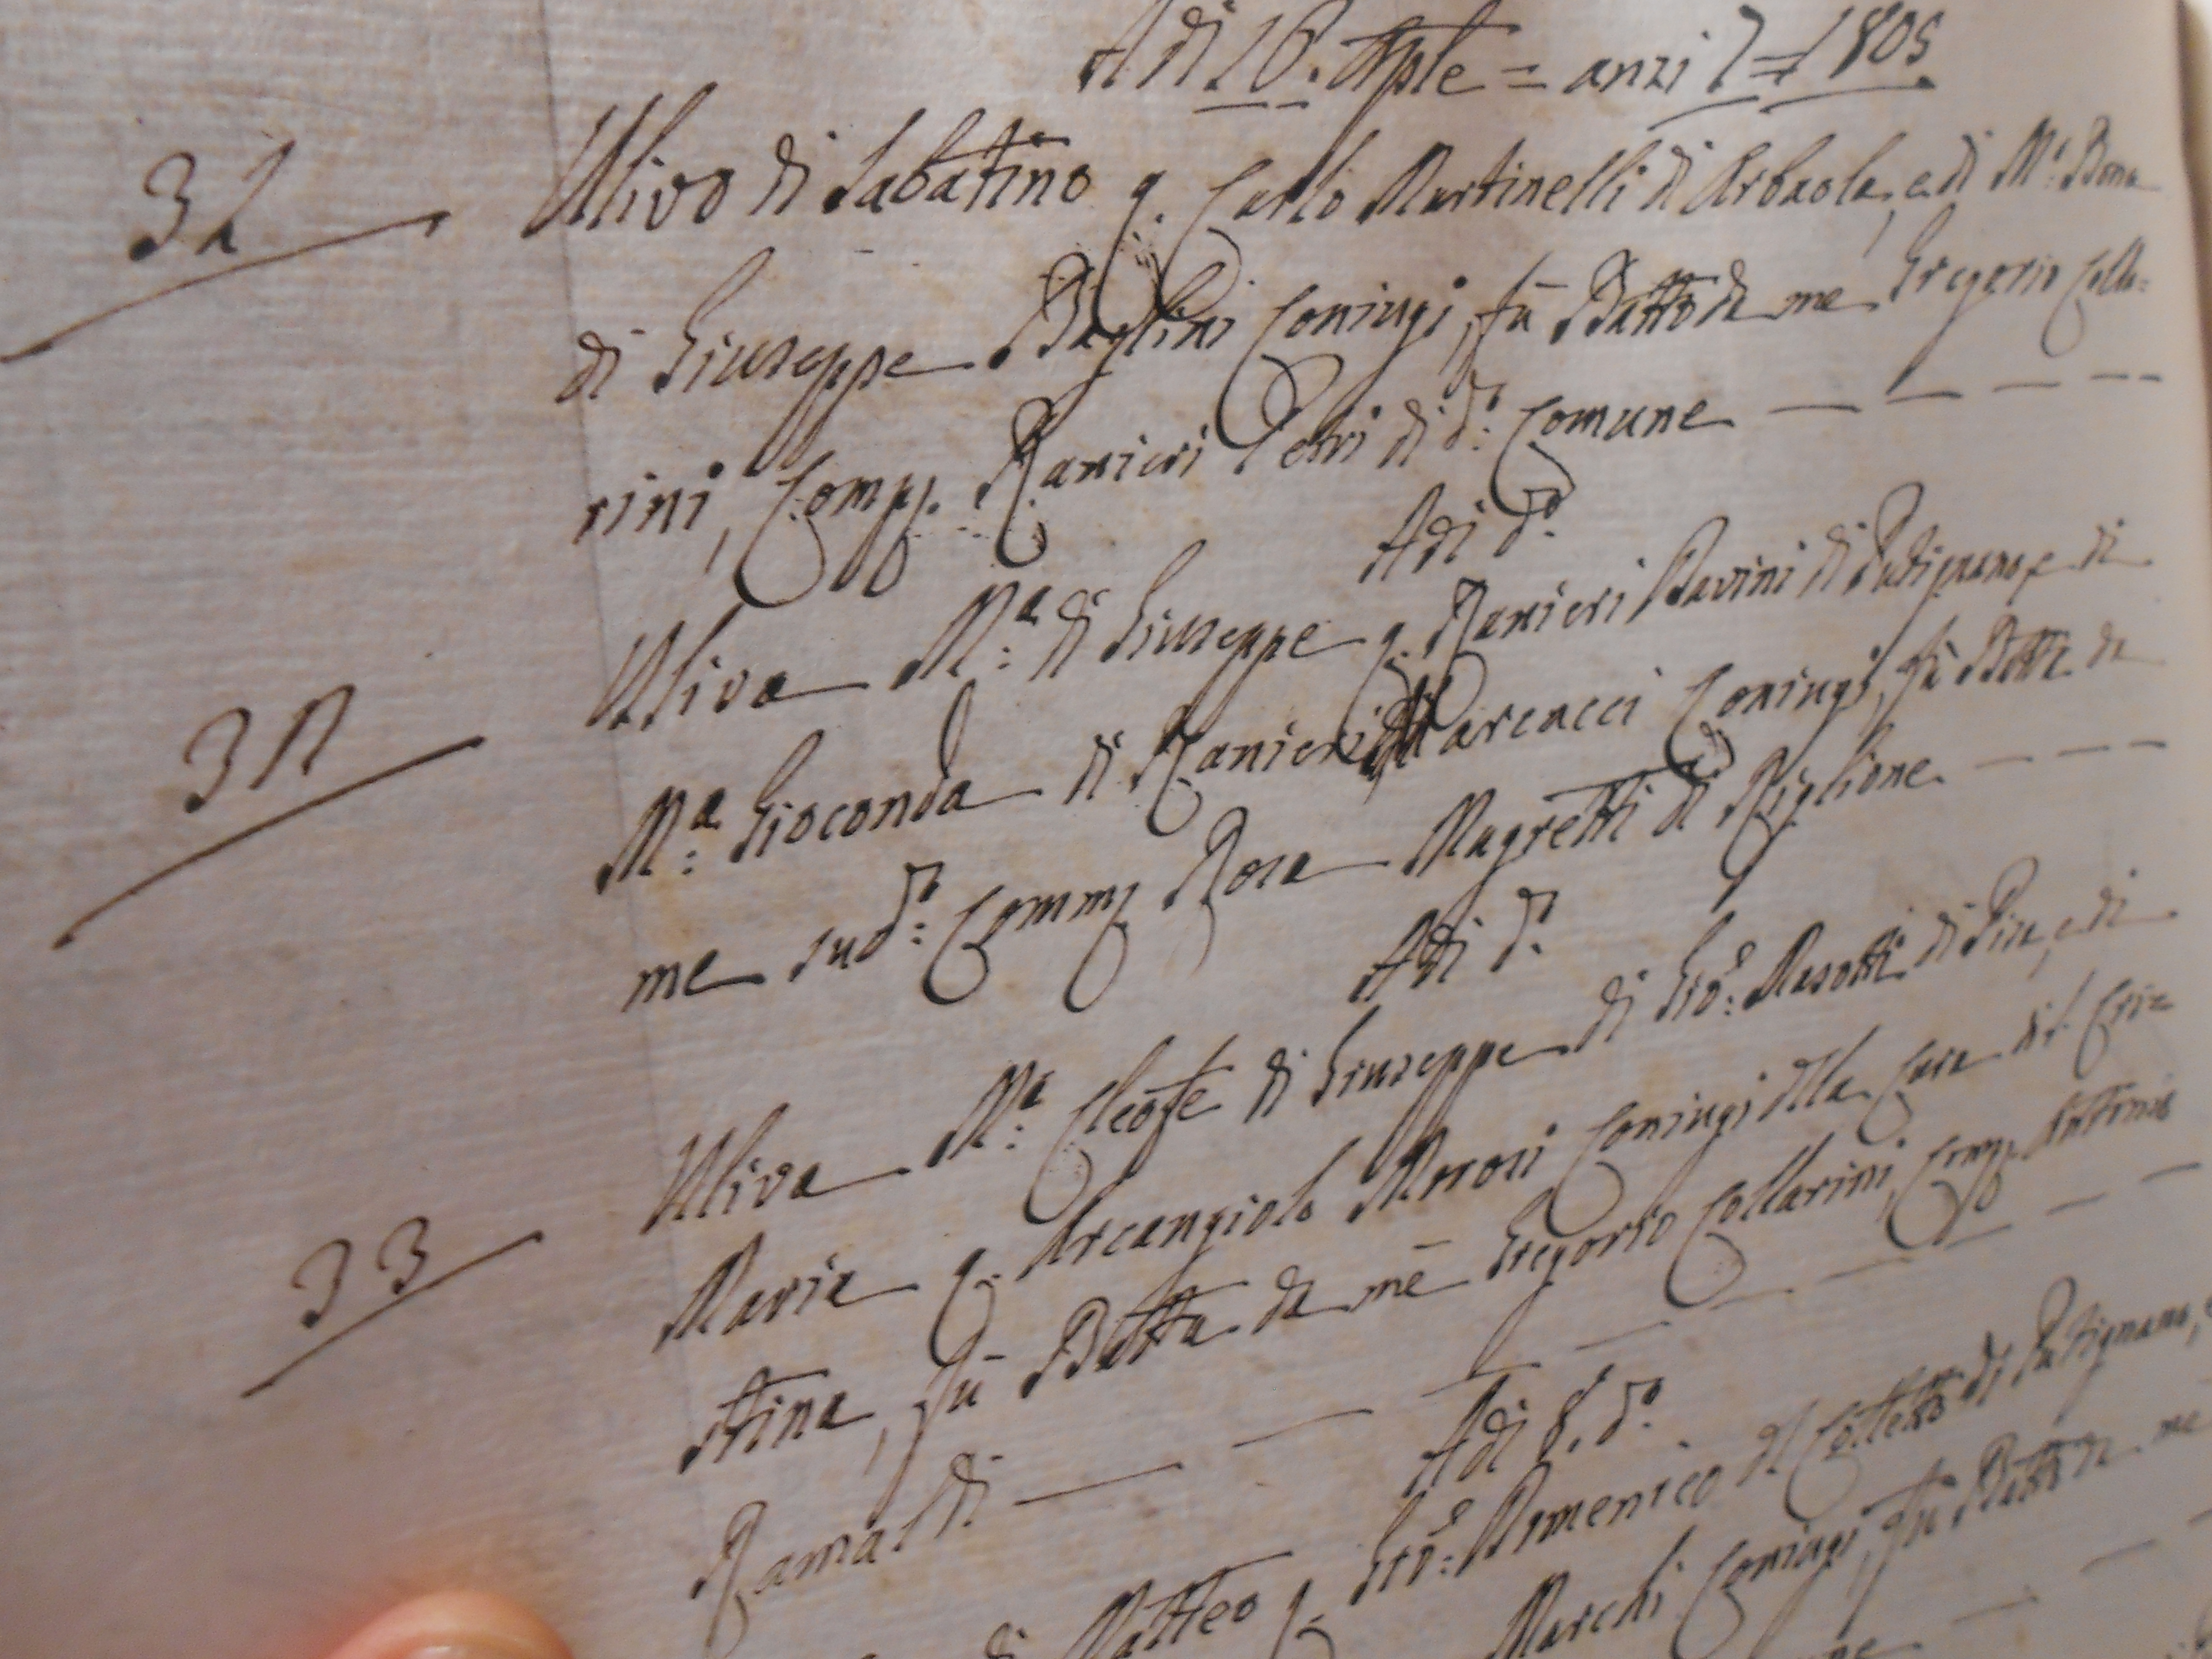 Adi 16. Aple = anzi 7 = 1805
31 Ulivo di Sabatino q. Carlo Martinelli di Arbaola, e di Mª: Bona
di Giuseppe Baglini Coniugi, fù Batto da me Gregorio Colla=
rini, Comp. Ranieri Petri di dº: Comune
Adi dº:
32 Uliva Mª: di Giuseppe q. Ranieri Pavini di Putignano, e di
Mª: Gioconda di Ranieri Marcacci Coniugi, fù Batta da
me sudº: Comm. Rosa Magretti di Riglione
Adi dº:
33 Uliva Mª: Cleofe di Giuseppe di Gioº: Masotti di Pisa, e di
Maria q. Arcangiolo Morosi Coniugi dlla Cura di S. Cri=
stina, fù Batta da me Gregorio Collarini, Comp. Antonio
Ramaldi
Adi 8. dº:
di Matteo q. Gioº: Domenico del Colletto di Putignano,
Marchi Coniugi, fù Batto da me